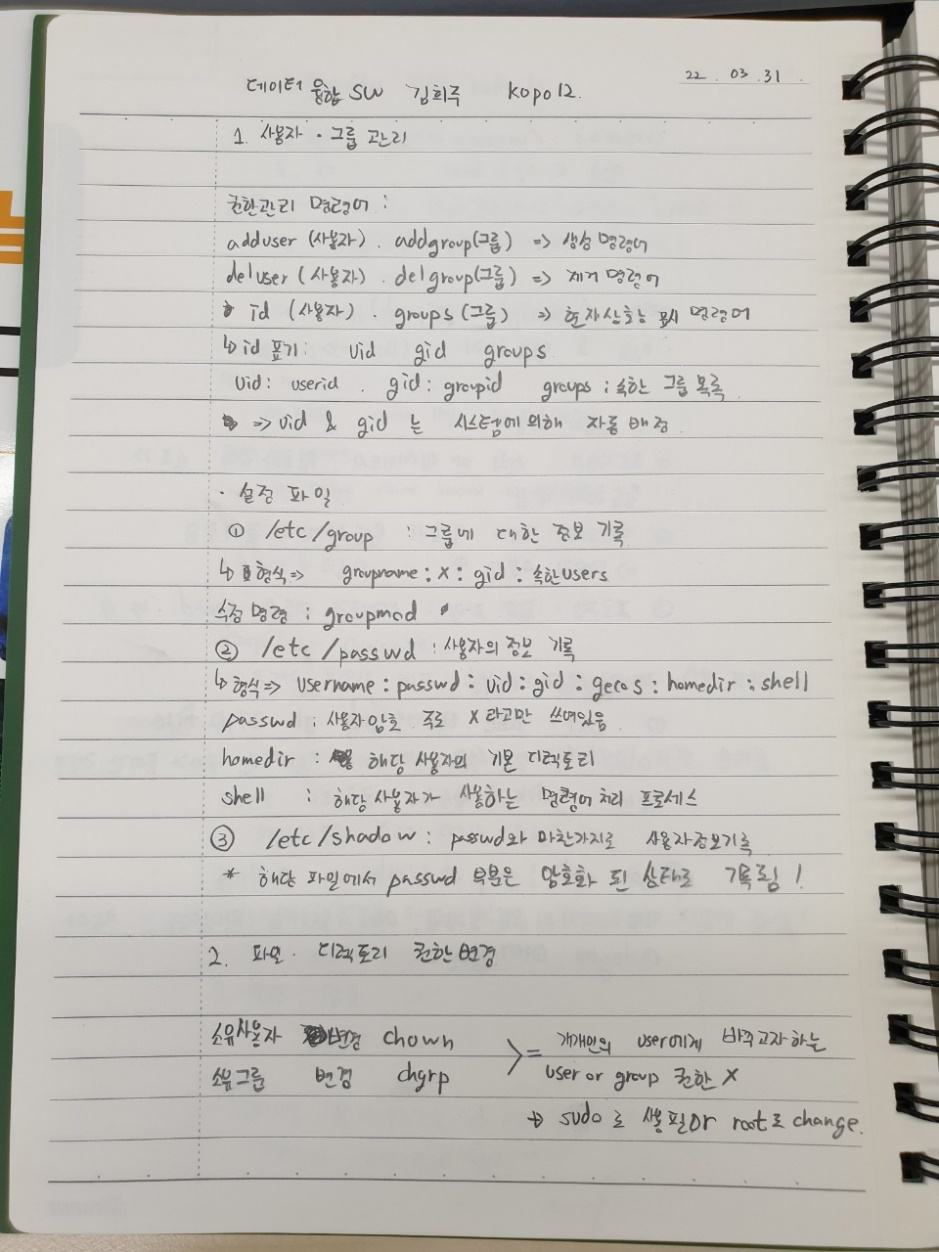 22 . 03 . 31 .
데이터 융합 SW 김희주 kopo12.
1. 사용자 · 그룹 관리
권한관리 명령어 :
adduser (사용자) . addgroup(그룹) => 생성 명령어
deluser (사용자) . delgroup(그룹) => 제거 명령어
id (사용자) . groups (그룹) => 현재상호능 표시 명령어
↳ id 표기 : uid gid groups
uid : userid . gid : groupid groups ; 속한 그룹 목록
=> uid & gid 는 시스템에 의해 자동 배정
· 설정 파일
① /etc/group : 그룹에 대한 정보 기록
↳ 형식 => groupname : x : gid : 속한users
수정 명령 ; groupmod
② /etc/passwd : 사용자의 정보 기록
↳ 형식 => username : passwd : uid : gid : gecos : homedir : shell
passwd ; 사용자암호 주로 x 라고만 쓰여있음
homedir : 해당 사용자의 기본 디렉토리
shell : 해당 사용자가 사용하는 명령어 처리 프로세스
③ /etc/shadow : passwd와 마찬가지로 사용자정보기록
* 해당 파일에서 passwd 부분은 암호화 된 상태로 기록됨 !
2. 파일 · 디렉토리 권한변경
소유사용자 변경 chown
소유그룹 변경 chgrp
> = 개개인의 user에게 바꾸고자하는
user or group 권한 X
→ sudo로 사용 필 or root로 change.